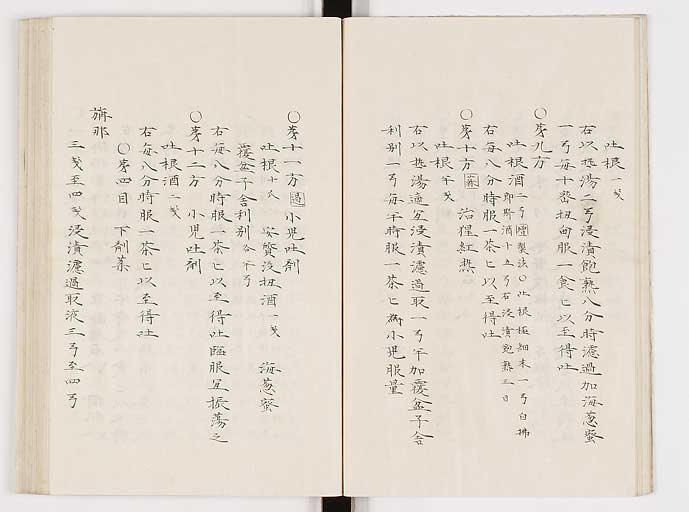 吐根 一戔
右以熱湯二弓浸漬飽熱八分時濾過加海葱蜜
一弓每十密扭ꞏ服一食匕以至得吐
○芽九方
吐根酒 二弓 製法○吐根極細末一弓白拂
郎斯酒十五弓右浸漬飽熱三日
右每八分時服一茶匕以至得吐
○芽十方 治猩紅熱
吐根 半戔
右以熱湯適宜浸漬濾過取一弓半加覆盆子舎
利別一弓每半時服一茶匕為小児服量
○芽十一方 小児吐剤
吐根 十 安質没扭酒 一戔 海葱蜜
覆盆子舎利別 各半弓
右每八分時服一茶匕以至得吐臨服宜振蕩之
○芽十二方 小児吐剤
吐根酒 二戔
右每八分時服一茶匕以至得吐
○芽四目 下剤薬
旃那
三戔至四戔浸漬濾過取液三弓至四弓